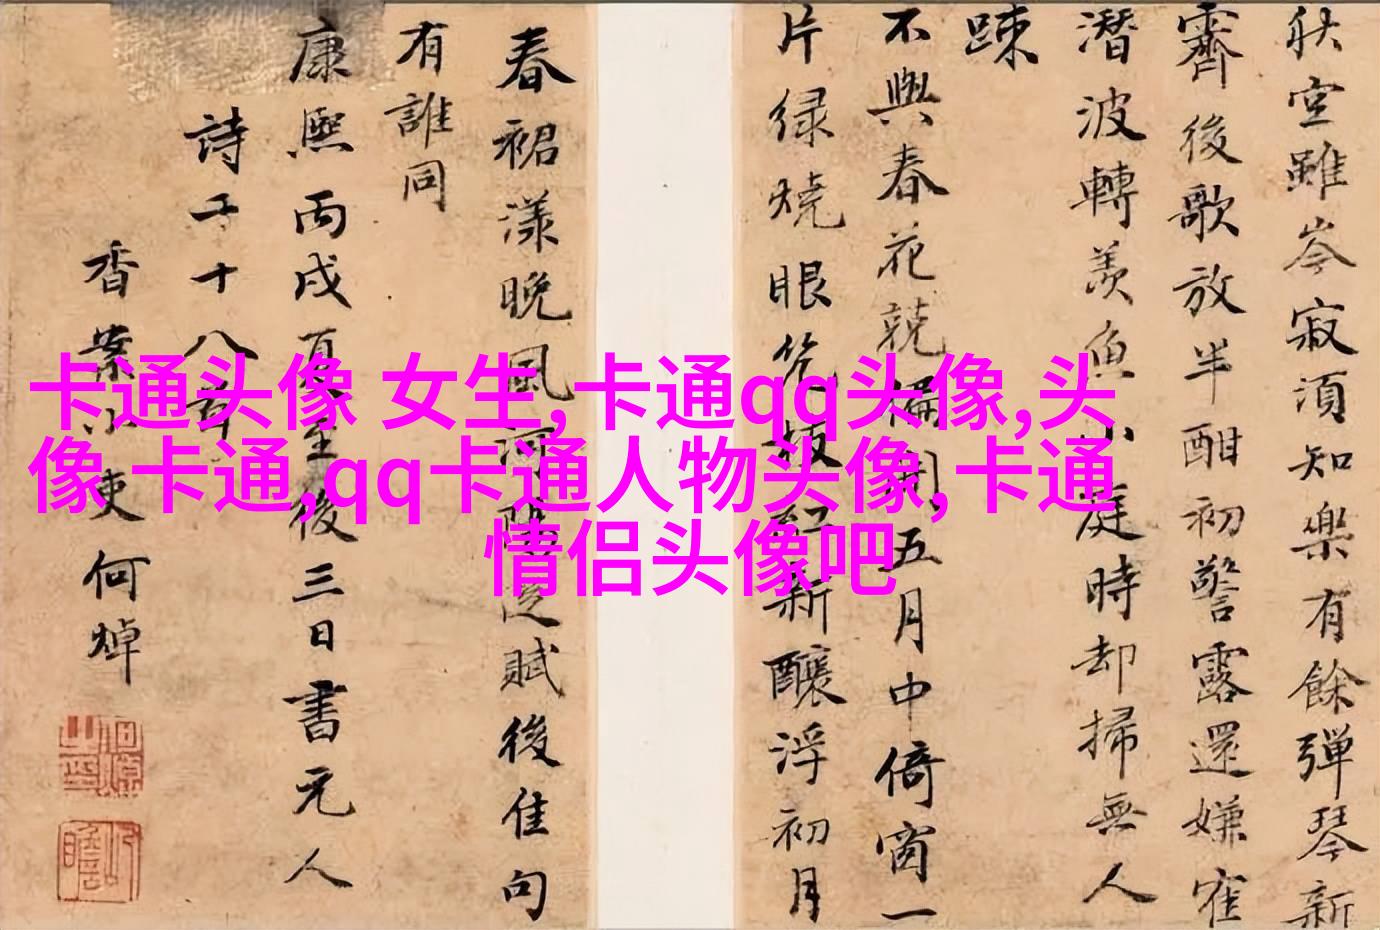 室雖岑寂須知樂有餘彈琴新
霽後歌放半酣初警露還嫌寉
潛波轉羨魚小庭時却掃無人
踈
不與春花競開五月中倚窗一
片緑燒眼紅新釀浮初月
春裙漾晚風河陽從賦後佳句
有誰同
康熙丙戌夏至後三日書元人
詩二十八章
香案小吏何焯
卡通头像 女生,卡通qq头像,头
像 卡通,qq卡通人物头像,卡通
情侣头像吧